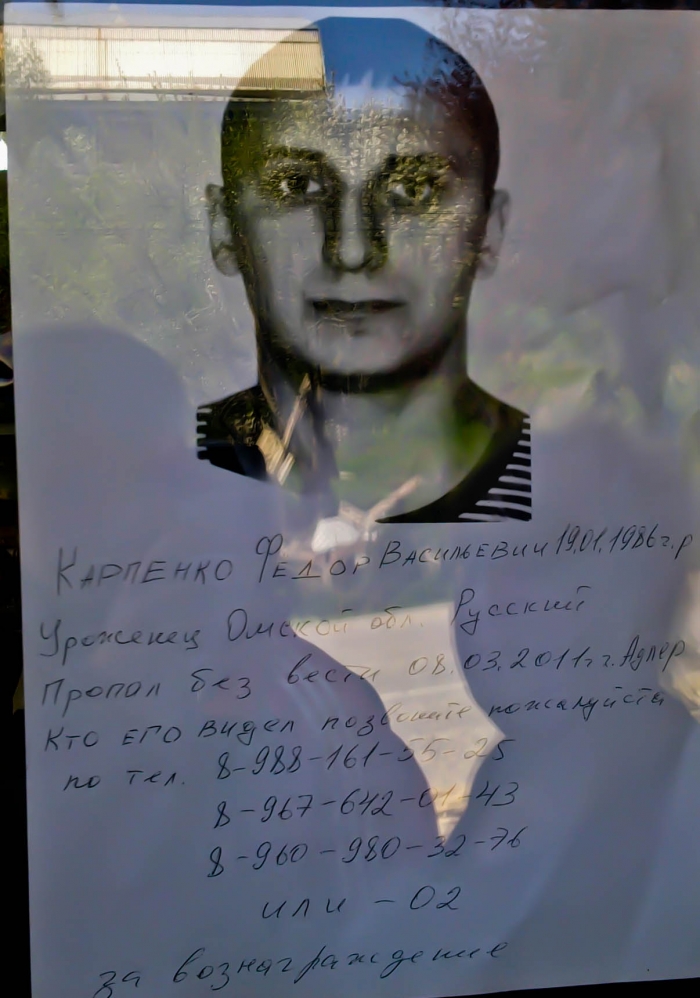 Карпенко Федор Васильевич 19.01.1986г.р
Уроженец Омской обл. Русский
Пропал без вести 08.03.2011г. г.Адлер
Кто его видел позвоните пожалуйста
по тел. 8-988-161-55-25
8-967-642-01-43
8-960-980-32-76
или - 02
за вознаграждение